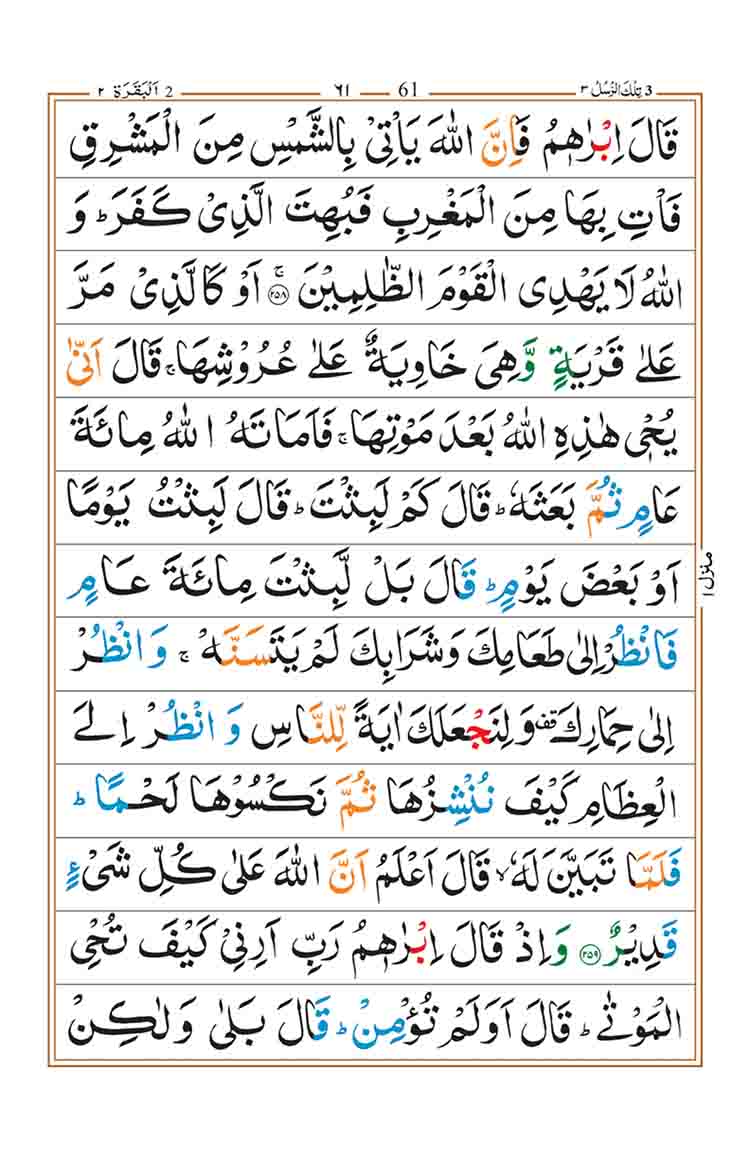 3 تِلْكَ الرُّسُلُ ٣ 61 ٦١ 2 اَلْبَقَرَة ٢
قَالَ اِبْرٰهٖمُ فَاِنَّ اللّٰهَ يَاْتِيْ بِالشَّمْسِ مِنَ الْمَشْرِقِ
فَاْتِ بِهَا مِنَ الْمَغْرِبِ فَبُهِتَ الَّذِيْ كَفَرَ ؕ وَ
اللّٰهُ لَا يَهْدِى الْقَوْمَ الظّٰلِمِيْنَ ۚ ٢٥٨ اَوْ كَالَّذِيْ مَرَّ
عَلٰى قَرْيَةٍ وَّهِىَ خَاوِيَةٌ عَلٰى عُرُوْشِهَا ۚ قَالَ اَنّٰى
يُحْيٖ هٰذِهِ اللّٰهُ بَعْدَ مَوْتِهَا ۚ فَاَمَاتَهُ اللّٰهُ مِائَةَ
عَامٍ ثُمَّ بَعَثَهٗ ؕ قَالَ كَمْ لَبِثْتَ ؕ قَالَ لَبِثْتُ يَوْمًا
اَوْ بَعْضَ يَوْمٍ ؕ قَالَ بَلْ لَّبِثْتَ مِائَةَ عَامٍ
فَانْظُرْ اِلٰى طَعَامِكَ وَشَرَابِكَ لَمْ يَتَسَنَّهْ ۚ وَانْظُرْ
اِلٰى حِمَارِكَ ۫ وَلِنَجْعَلَكَ اٰيَةً لِّلنَّاسِ وَانْظُرْ اِلَى
الْعِظَامِ كَيْفَ نُنْشِزُهَا ثُمَّ نَكْسُوْهَا لَحْمًا ؕ
فَلَمَّا تَبَيَّنَ لَهٗ ۙ قَالَ اَعْلَمُ اَنَّ اللّٰهَ عَلٰى كُلِّ شَىْءٍ
قَدِيْرٌ ٢٥٩ وَاِذْ قَالَ اِبْرٰهٖمُ رَبِّ اَرِنِيْ كَيْفَ تُحْيِ
الْمَوْتٰى ؕ قَالَ اَوَلَمْ تُؤْمِنْ ؕ قَالَ بَلٰى وَلٰكِنْ
منزل ١